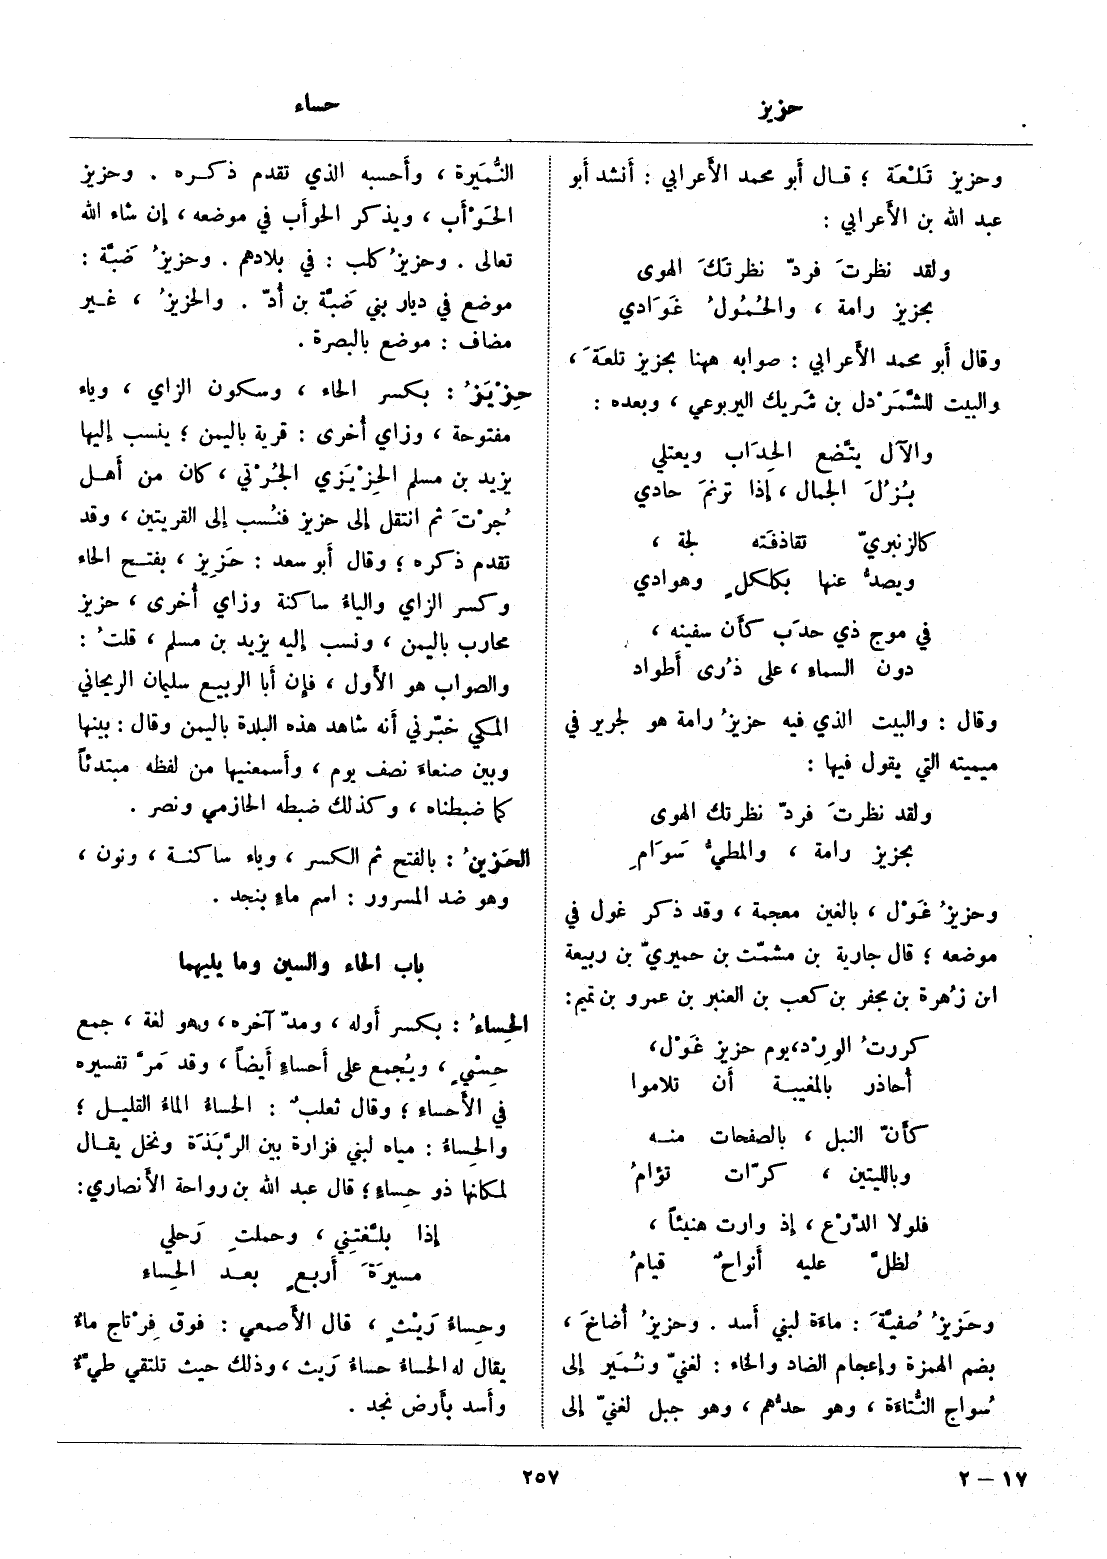 حزيز
حساء
وحزيز تَلْعَة ؛ قال أبو محمد الأعرابي : أنشد أبو
عبد الله بن الأعرابي :
ولقد نظرتَ فردّ نظرتَكَ الهوى
بحزيز رامة ، والحُمُولُ غَوَادي
وقال أبو محمد الأعرابي : صوابه ههنا بحزيز تلعَةَ ،
والبيت للشَّمَرْدل بن شريك اليربوعي ، وبعده :
والآل يتَّضع الحِدَاب ويعتلي
بُزُلَ الجمال ، إذا ترنمَ حادي
كالزنبريّ تقاذفَته لجة ،
ويصدُّ عنها بكلكلٍ وهوادي
في موج ذي حدَب كأن سفينه ،
دون السماء ، على ذرى أطواد
وقال : والبيت الذي فيه حزيزُ رامة هو لجرير في
ميميته التي يقول فيها :
ولقد نظرتَ فردّ نظرتك الهوى
بحزيز رامة ، والمطيُّ سَوَامِ
وحزيزُ غَوْل ، بالغين معجمة ، وقد ذكر غول في
موضعه ؛ قال جارية بن مشمّت بن حميريّ بن ربيعة
ابن زُهرة بن مجفر بن كعب بن العنبر بن عمرو بن تميم :
كررتُ الوِرْد، يوم حزيز غَوْل،
أحاذر بالمغيبة أن تلاموا
كأنّ النبل ، بالصفحات منه
وبالليتين ، كرّات تؤامُ
فلولا الدّرْع ، إذ وارت هنيئاً ،
لظلّ عليه أنواحٌ قيامُ
وحَزيزُ صُفيَّةَ : ماءة لبني أسد . وحزيزُ أُضاخَ ،
بضم الهمزة وإعجام الضاد والخاء : لغنيّ ونُمَير إلى
سُواج النُّتاءَة ، وهو حدُّهم ، وهو جبل لغنيّ إلى
النُّمَيرة ، وأحسبه الذي تقدم ذكره . وحزيز
الحَوْأَب ، ويذكر الحوأب في موضعه ، إن شاء الله
تعالى . وحزيزُ كلب : في بلادهم . وحزيزُ ضَبَّة :
موضع في ديار بني ضَبَّة بن أُدّ . والحزيزُ ، غير
مضاف : موضع بالبصرة .
حِزْيَزُ : بكسر الحاء ، وسكون الزاي ، وياء
مفتوحة ، وزاي أُخرى : قرية باليمن ؛ ينسب إليها
يزيد بن مسلم الحِزْيَزي الجُرْتي ، كان من أهل
جُرْتَ ثم انتقل إلى حزيز فنُسب إلى القريتين ، وقد
تقدم ذكره ؛ وقال أبو سعد : حَزِيز ، بفتح الحاء
وكسر الزاي والياءُ ساكنة وزاي أُخرى ، حزيز
محارب باليمن ، ونسب إليه يزيد بن مسلم ، قلتُ :
والصواب هو الأول ، فإن أبا الربيع سليمان الريحاني
المكي خبّرني أنه شاهد هذه البلدة باليمن وقال : بينها
وبين صنعاءَ نصف يوم ، وأسمعنيها من لفظه مبتدئاً
كما ضبطناه ، وكذلك ضبطه الحازمي ونصر .
الحَزينُ : بالفتح ثم الكسر ، وياء ساكنة ، ونون ،
وهو ضد المسرور : اسم ماءٍ بنجد .
باب الحاء والسين وما يليهما
الحِساءُ : بكسر أوله ، ومدّ آخره ، وهو لغة ، جمع
حِسْيٍ ، ويُجمع على أحساءٍ أيضاً ، وقد مَرَّ تفسيره
في الأحساء ؛ وقال ثعلبٌ : الحساءُ الماءُ القليل ؛
والحِساءُ : مياه لبني فزارة بين الرَّبَذَة ونخل يقال
لمكانها ذو حِساءٍ ؛ قال عبد الله بن رواحة الأنصاري:
إذا بلَّغتِني ، وحملتِ رَحلي
مسيرَةَ أربعٍ بعد الحِساء
وحِساءُ رَيْثٍ ، قال الأصمعي : فوق فِرْتاج ماءٌ
يقال له الحساءُ حساءُ رَيث ، وذلك حيث تلتقي طيءٌ
وأسد بأرض نجد .
١٧ – ٢
٢٥٧